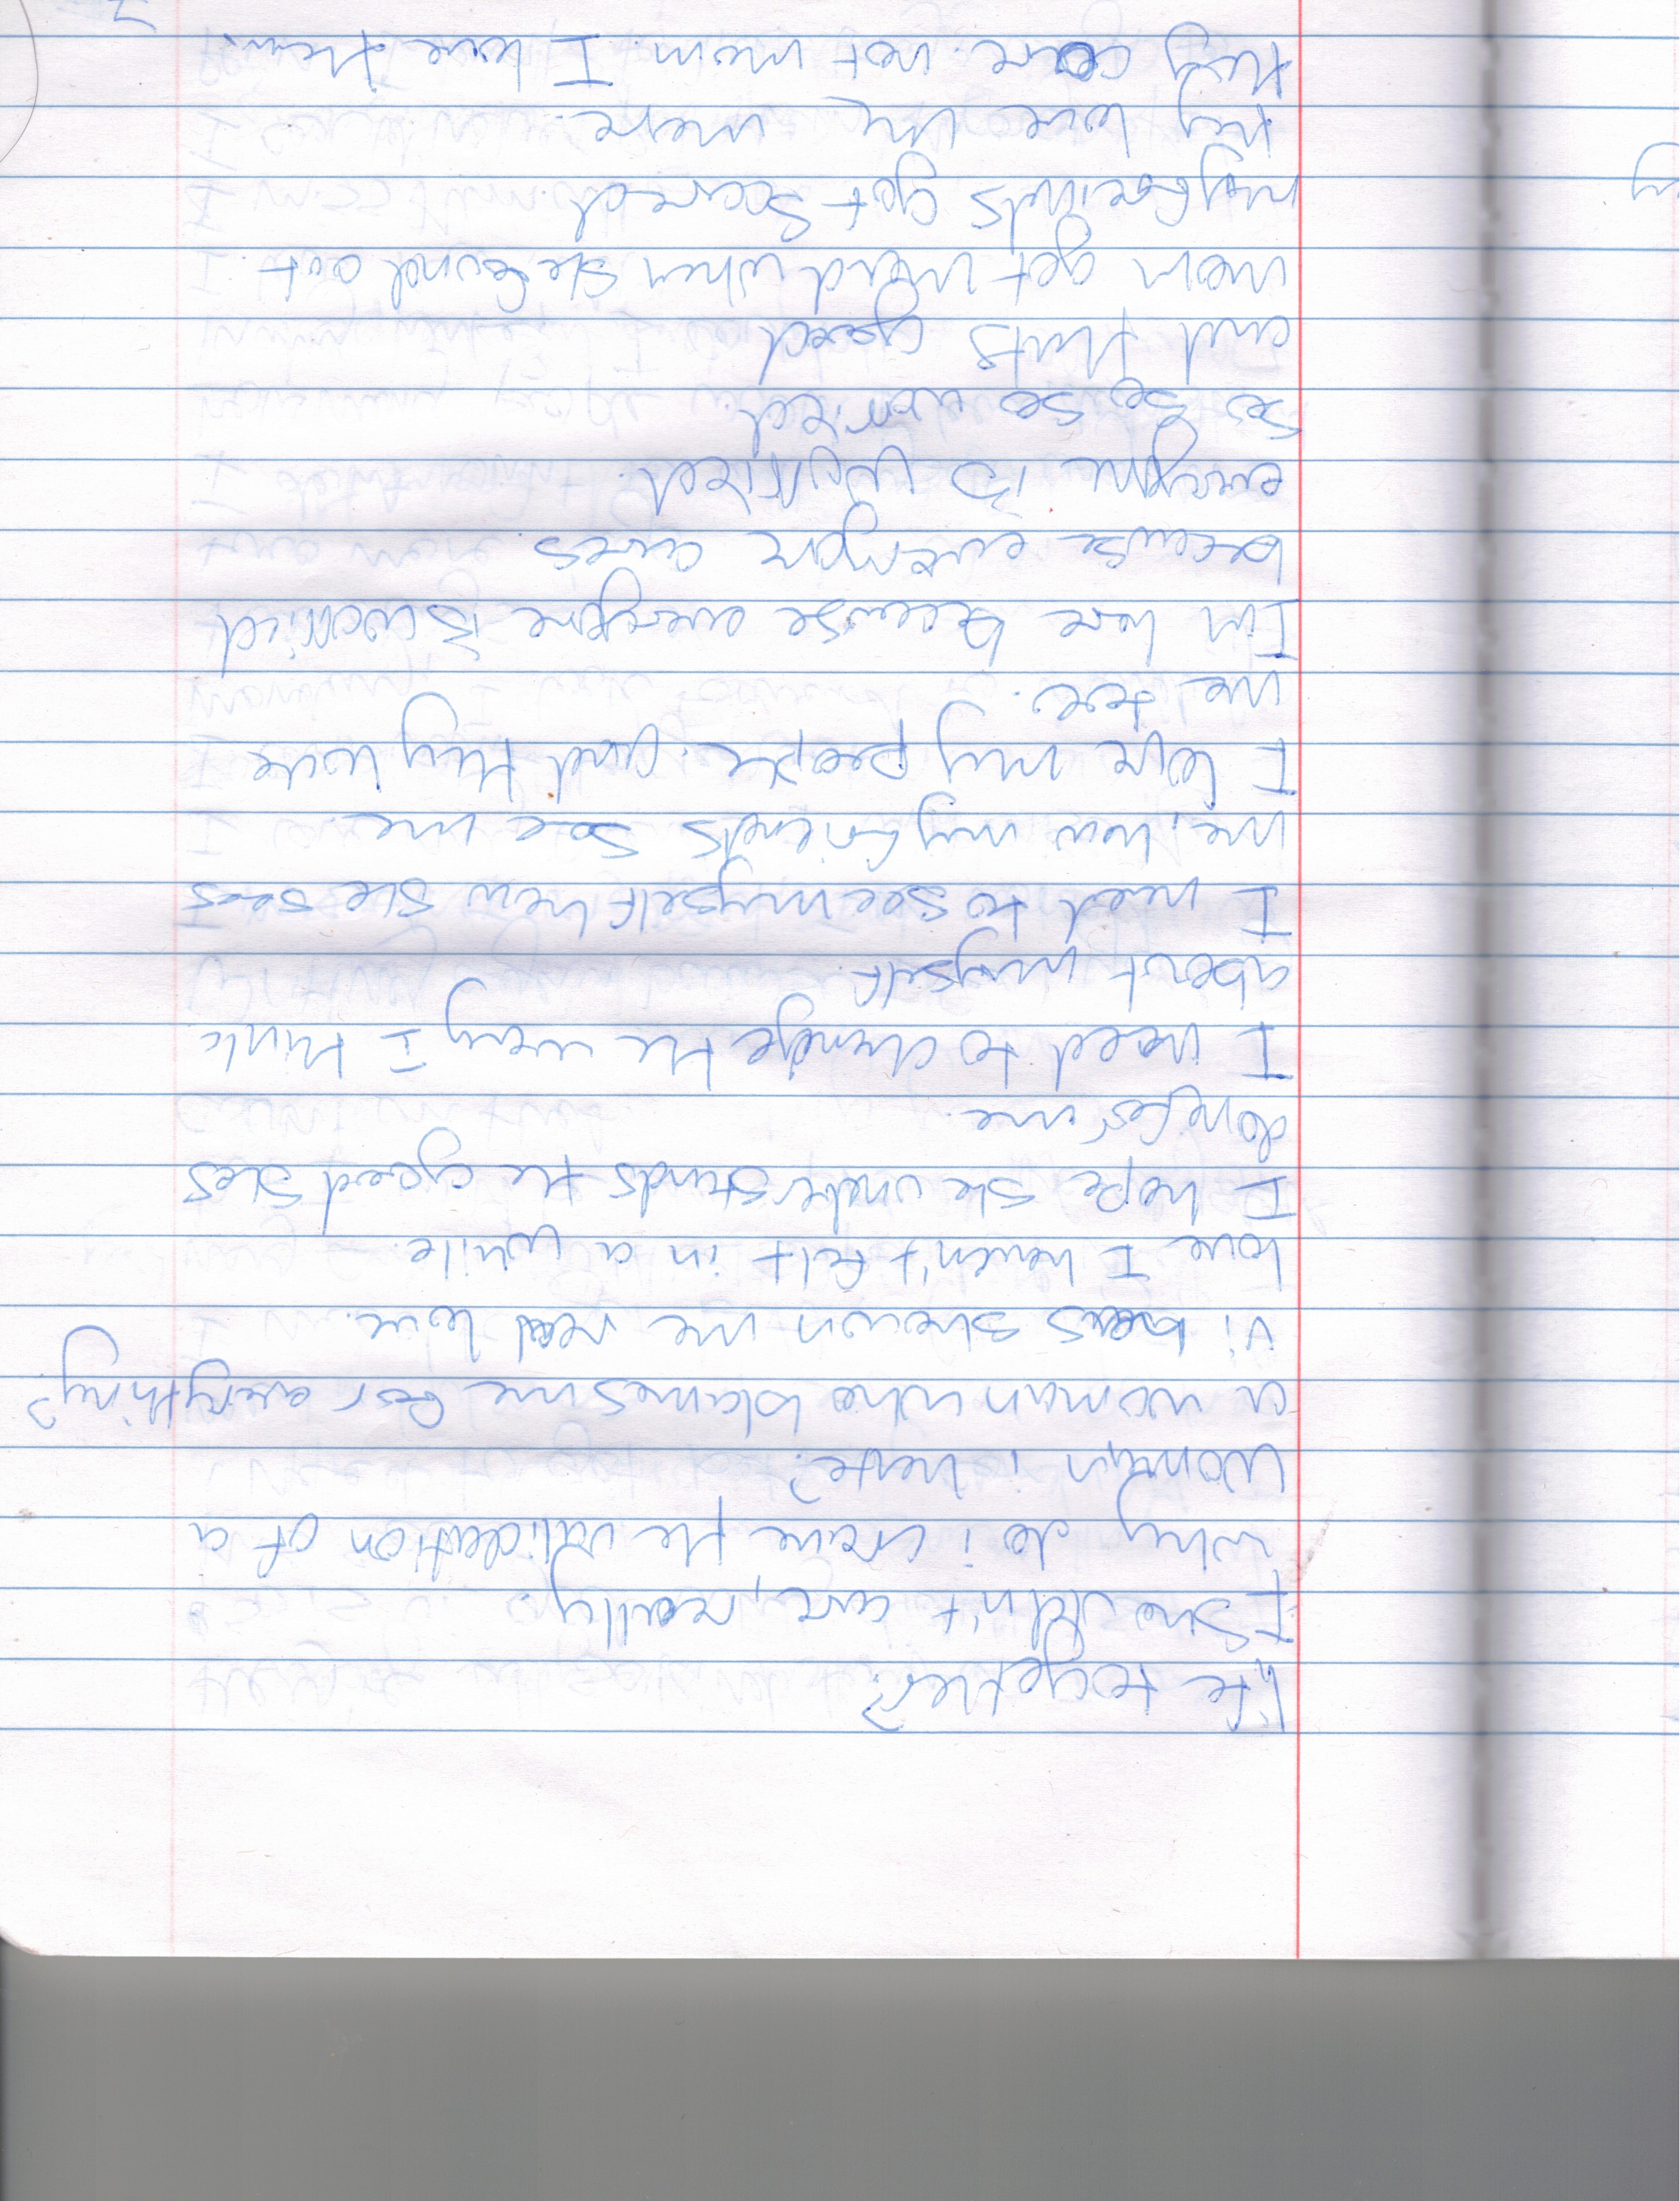 life together?
I snodldn't care, really.
why do i crave the validation of a
woman i hate?
a woman who blames me for everything?
Vi has shown me real love.
love I haven't felt in a while.
I hope she understands the good shes
done for me.
I need to change the way I think
about myself.
I need to see myself how she sees
me, how my friends see me.
I love my people. and they love
me too.
I'm here because everyone is worried
because everyone cares
everyone is worried.
So so so worried.
and thats good
mom got mad when she found out.
my friends got scared
they love me more.
they care. not mom. I love them.